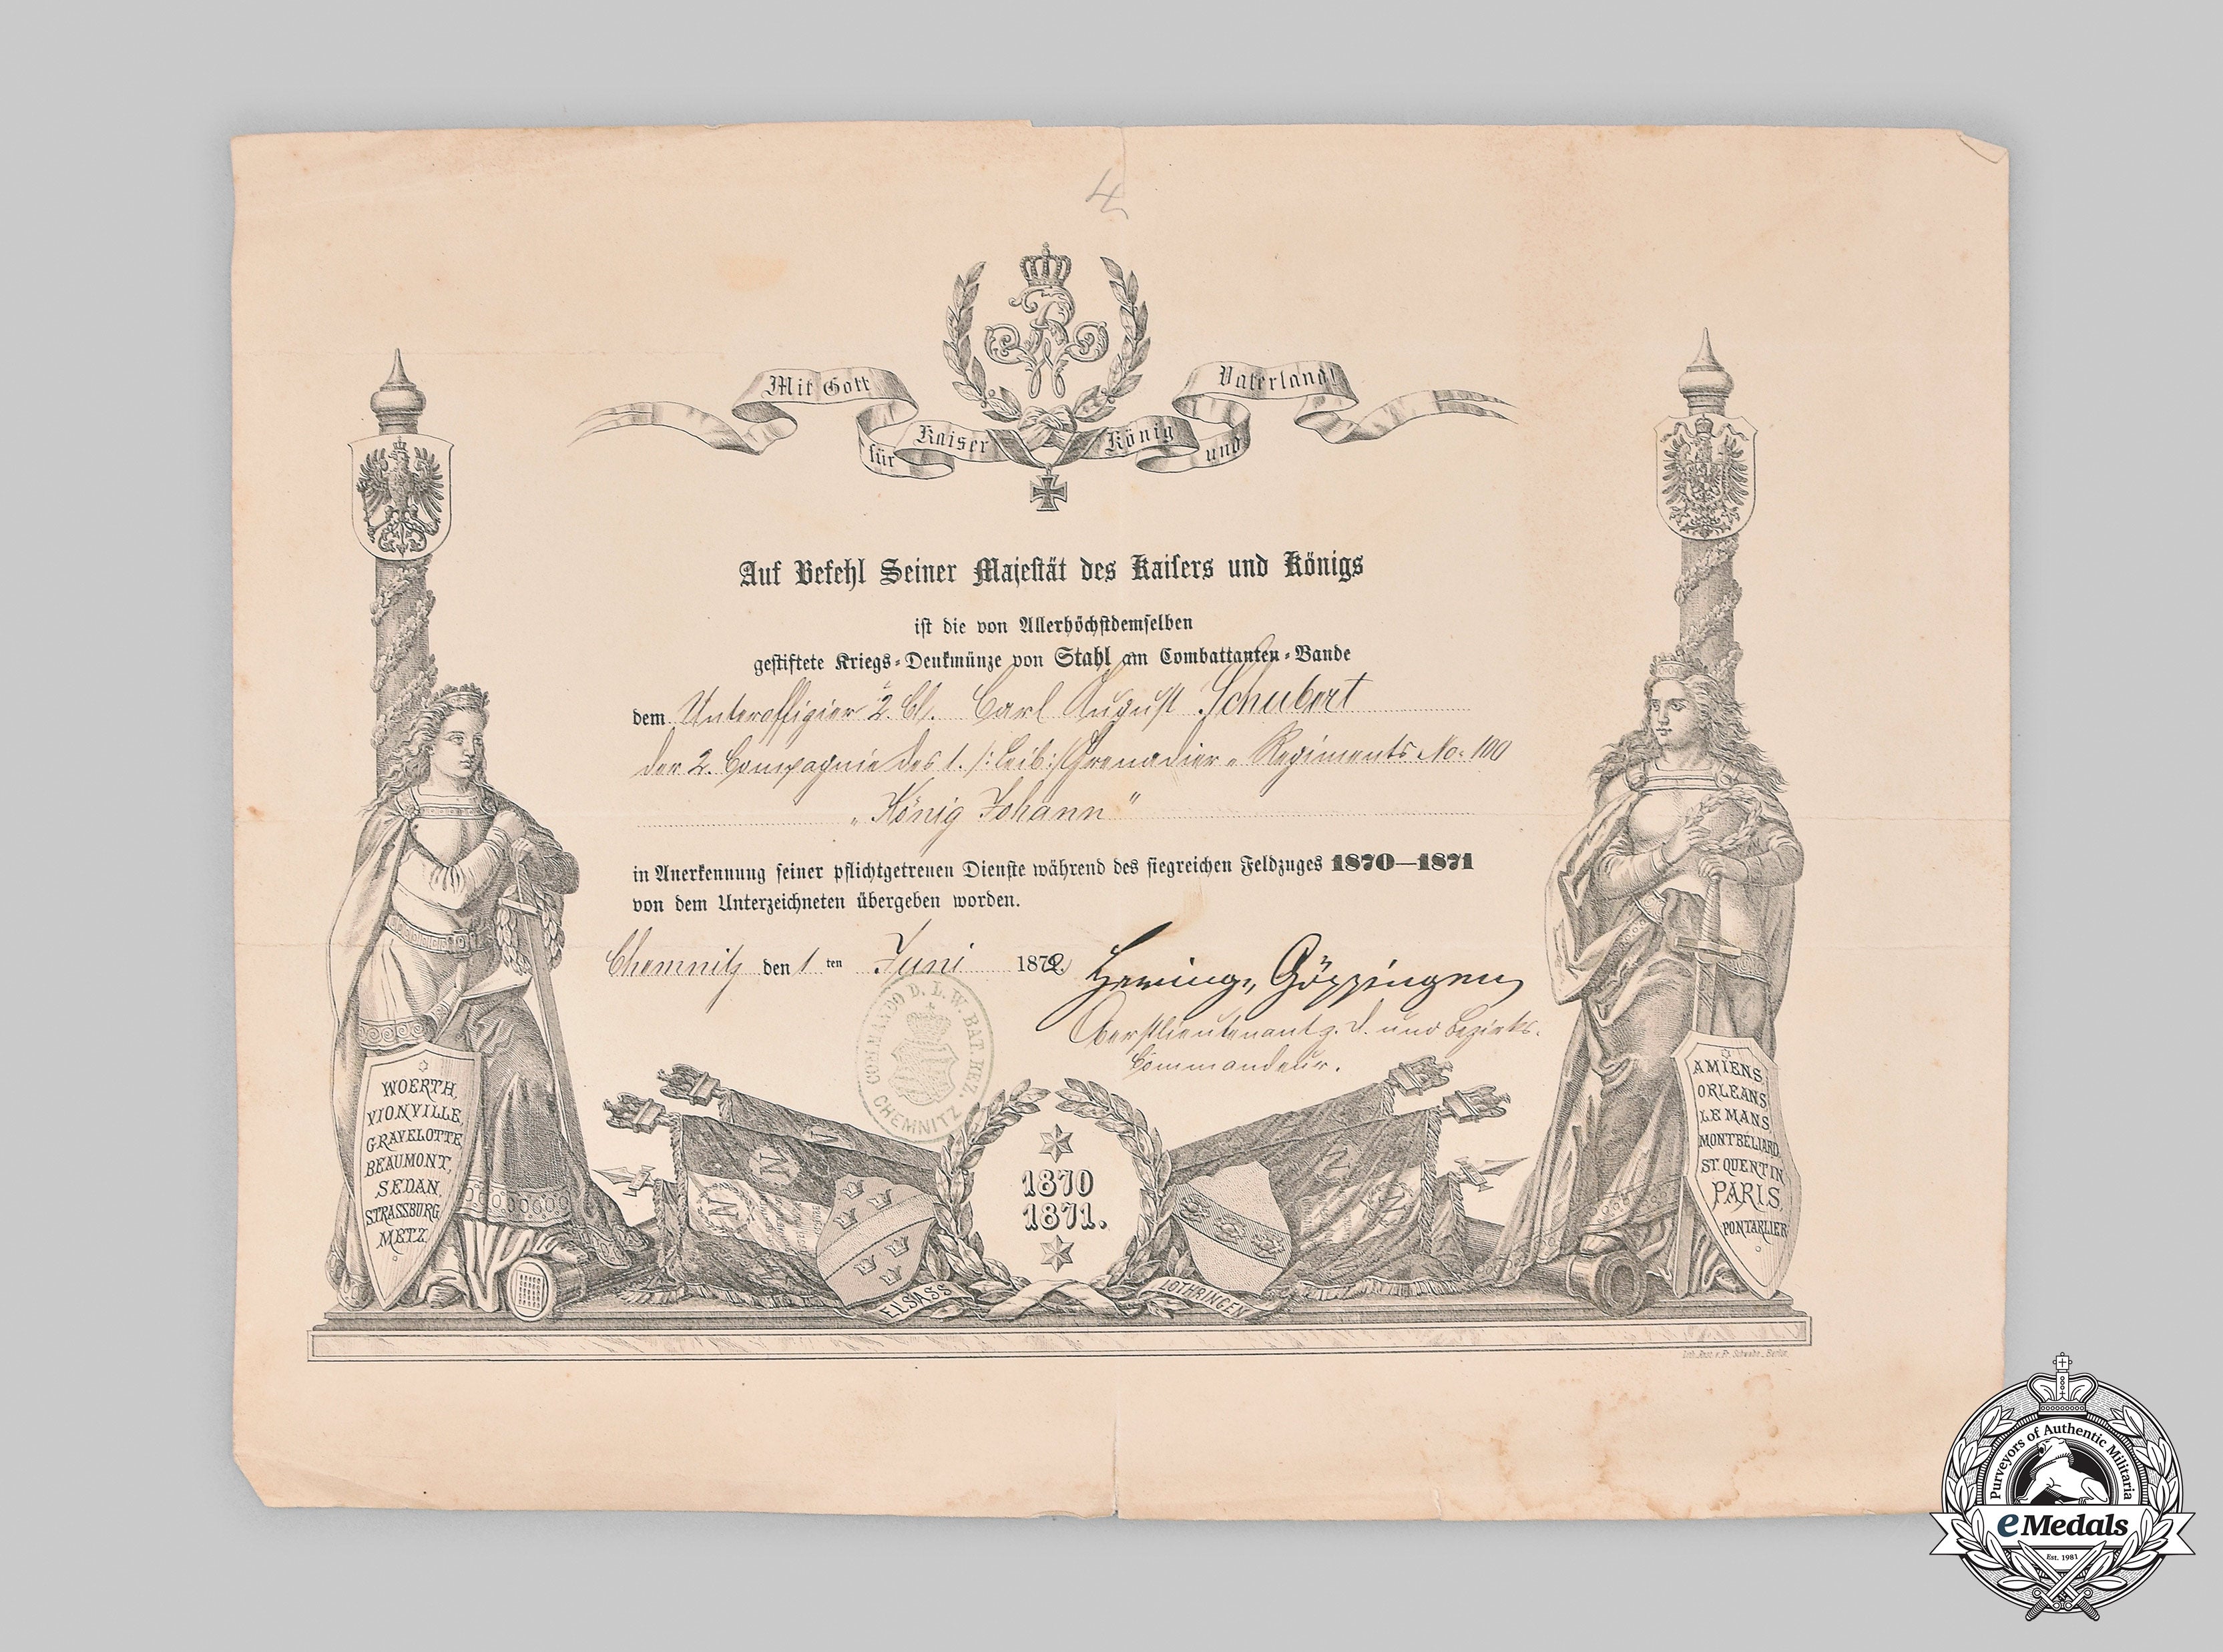 4
Mit Gott
für
Kaiser
König
und
Vaterland!
Auf Befehl Seiner Majestät des Kaisers und Königs
ist die von Allerhöchstdemselben
gestiftete Kriegs-Denkmünze von Stahl am Combattanten-Bande
dem Unteroffizier 2. Cl. Carl August Schubert
der 2. Compagnie des 1. /:Leib:/ Grenadier-Regiments No: 100
"König Johann"
in Anerkennung seiner pflichtgetreuen Dienste während des siegreichen Feldzuges 1870—1871
von dem Unterzeichneten übergeben worden.
Chemnitz den 1ten Juni 1872.
Göppingen
Oberstlieutenant z. D. und Bezirks-
Commandeur.
COMMANDO D. L. W. BAT. BEZ. CHEMNITZ
WOERTH,
VIONVILLE,
GRAVELOTTE
BEAUMONT,
SEDAN,
STRASSBURG,
METZ.
N
N
ELSASS
1870
1871.
LOTHRINGEN
AMIENS,
ORLEANS,
LE MANS,
MONTBÉLIARD,
ST. QUENTIN
PARIS,
PONTARLIER
Purveyors of Authentic Militaria
eMedals
Est. 1981